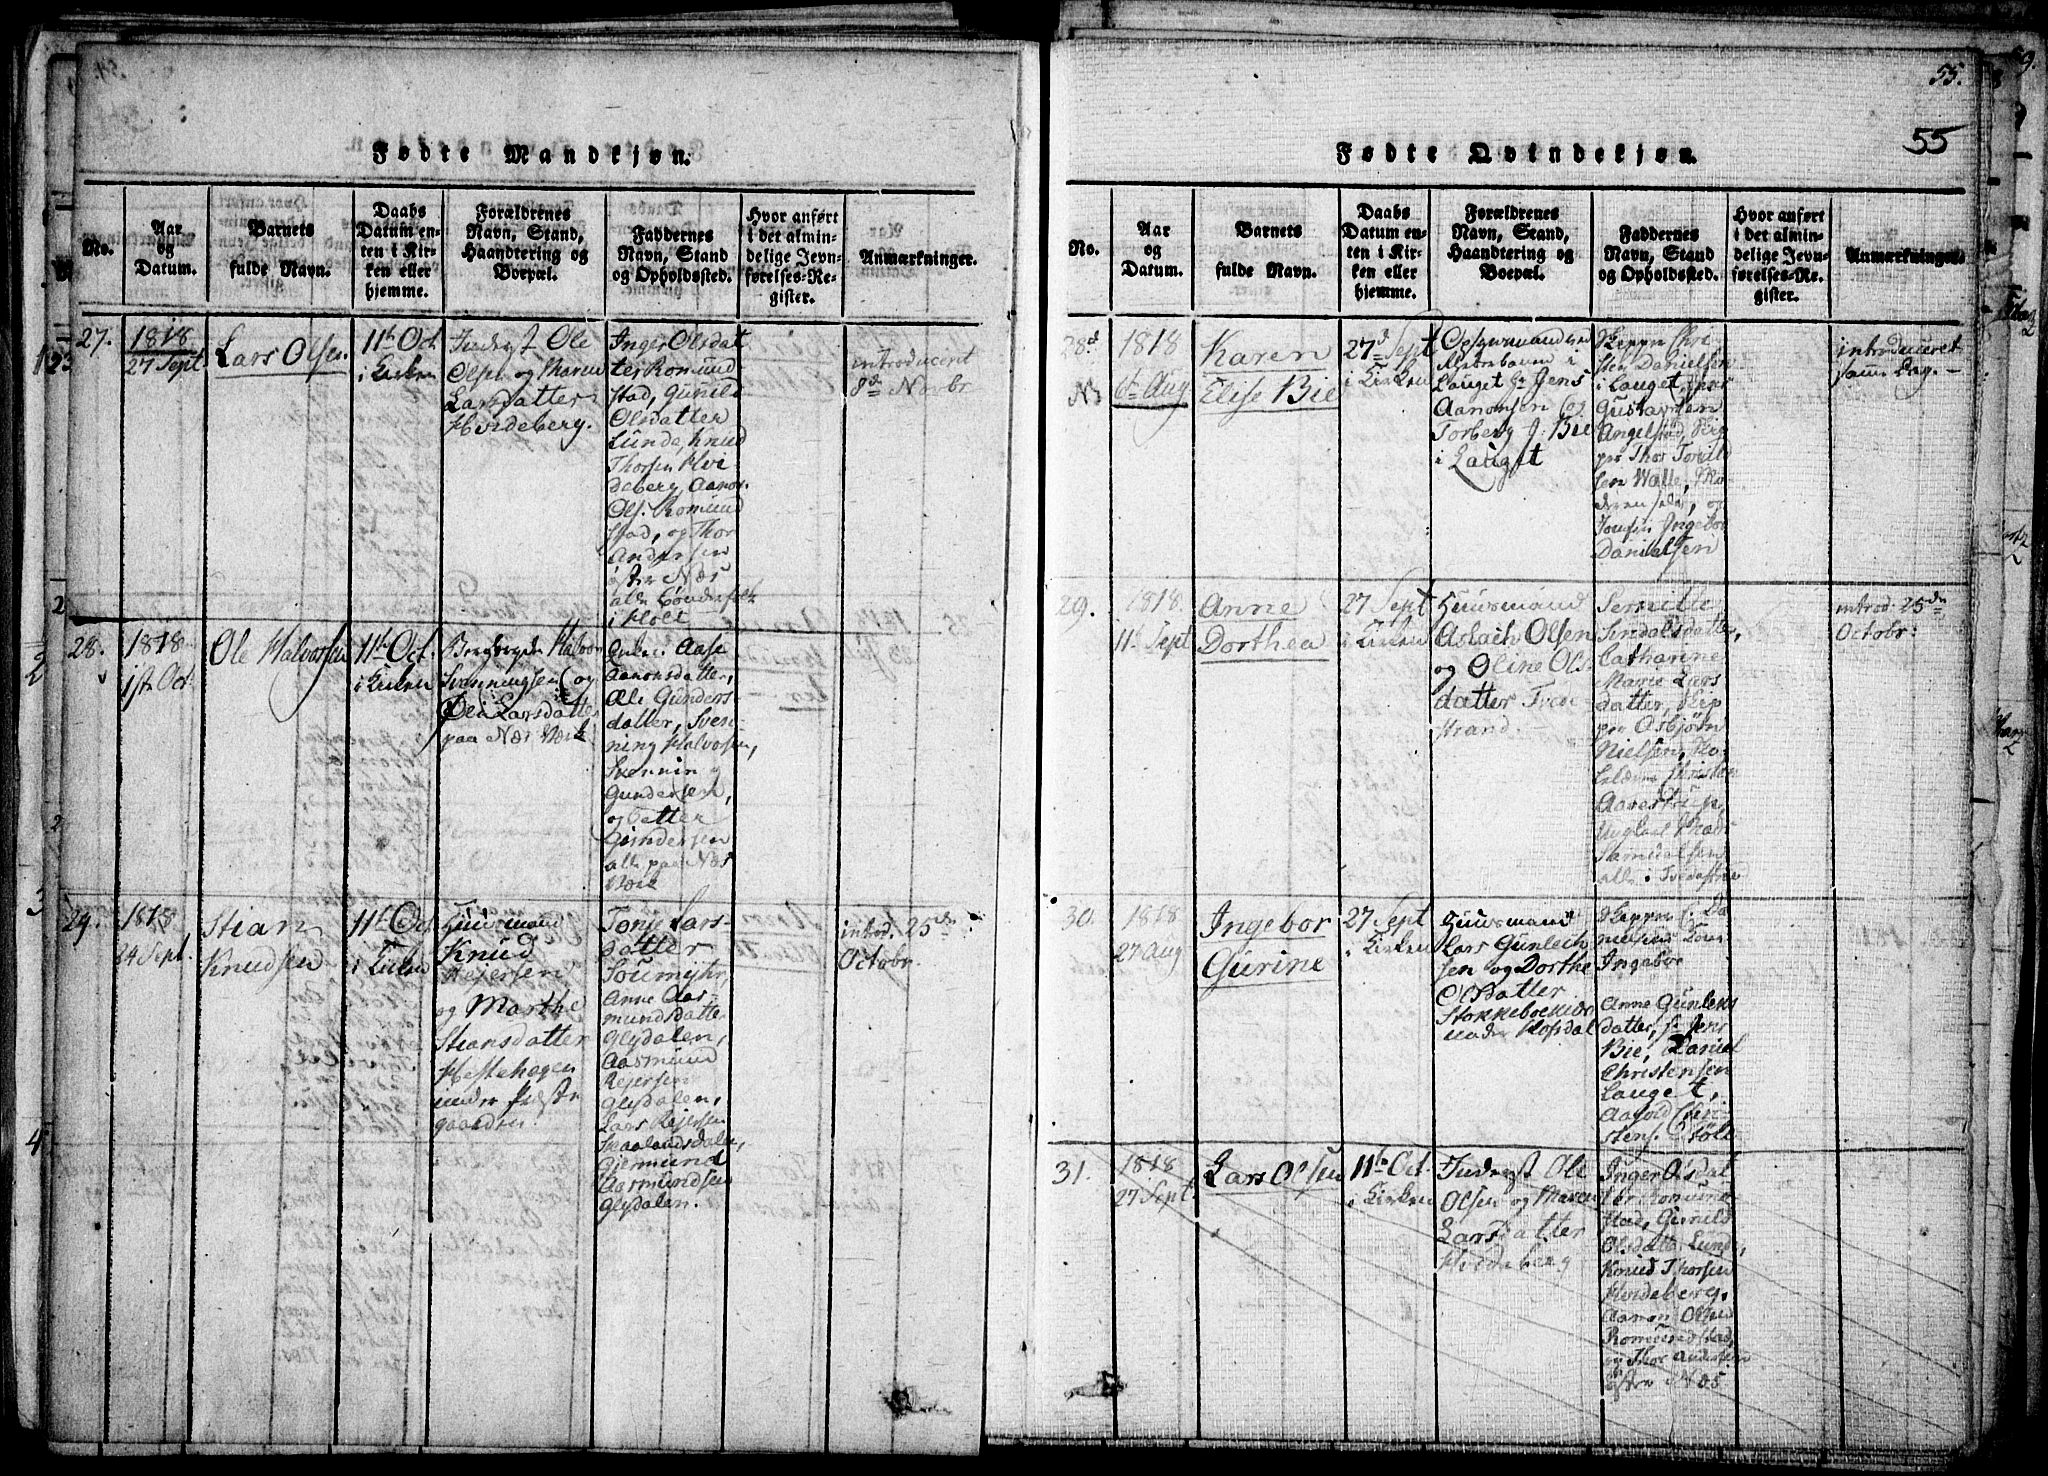 Fødte Mandkjøn.
No.
Aar
og
Datum.
Barnets
fulde Navn.
Daabs
Datum en-
ten i Kir-
ken eller
hjemme.
Forældrenes
Navn, Stand,
Haandtering og
Boepæl.
Faddernes
Navn, Stand
og Opholdssted.
Hvor anført
i det almin-
delige Jevn-
førelses-Re-
gister.
Anmærkninger.
27.
1818
27 Sept.
Lars Olsen
11te Oct
i Kirken
Olsen og Maren
Larsdatter
Hvideberg.
Inger Olsdat
ter Romund
stad, Gunild
Olsdatter
Lunde, Knud
Thorsen Hvi
deberg, Aanon
Ols. Romund
stad, og Thor
Andersen
øster Næs
alle Bønderfolk
i Holt
introduceret
8de Novbr
28.
1818
1ste Oct
Ole Halvorsen
11te Oct.
i Kirken
Halvor
Svenningsen og
Larsdatter
paa Næs Værk
Aase
Aanonsdatter,
Gunders-
datter, Sven-
ning Halvorsen,
Svennin g
Gundersen,
og Peter
Gundersen
alle paa Næs
Værk
29.
1818
24 Sept.
Stian
Knudsen
11te Oct.
i Kirken
Huusmand
Knud
Rejersen
og Marthe
Stiansdatter
Hestehagen
under Præste
gaarden.
Tonje Lars-
datter
Soumyhr,
Anne Aas-
mundsdatter
Glydalen,
Aasmund
Rejersen
Glydalen,
Lars Rejersen
Skaalandsdalen,
Gjermund
Aasmundsen
Glydalen.
introd. 25de
Octobr.
55.
55
Fødte Qvindekjøn.
No.
Aar
og
Datum.
Barnets
fulde Navn.
Daabs
Datum en-
ten i Kir-
ken eller
hjemme.
Forældrenes
Navn, Stand,
Haandtering og
Boepæl.
Faddernes
Navn, Stand
og Opholdssted.
Hvor anført
i det almin-
delige Jevn-
førelses-Re-
gister.
Anmærkninger.
28
1818
6te Aug
Karen
Elise Bie
27de Sept
i Kirken
i
Lauget Hr Jens
Aanonsen og
Torberg J: Bie
i Lauget
Skipper Chri
sten Danielsen
i Lauget,
Gustavsen
Angelstad, Skip
per Thor
Walle, Mo
deren selv, og
Jomfru Ingebor
Danielsen
introduceret
samme Dag.
29.
1818.
11te Sept
Anne
Dorthea
27 Sept
i Kirken
Huusmand
Aslach Olsen
og Oline Ols
datter Tvede
strand
Catharine
Marie Lars
datter, Skip
per Osbjørn
Nielsen,
Aarestrup,
Samuelsen
alle i Tvedestrand
introd. 25de
Octobr:
30.
1818
27 Aug
Ingebor
Gurine
27 Sept
i Kirken
Huusmand
Lars Gunlech
sen og Dorthe
Olsdatter
Stokkebockkær
under Hofsdal
Skipper C. Da
nielsens
Ingebor
Anne Gunleks
datter, Hr Jens
Bie, Daniel
Christensen
Lauget,
Chri-
stens.
31.
1818
27 Sept.
Lars Olsen
11te Oct.
i Kirken
Ole
Olsen og Maren
Larsdatter
Hvideberg
Inger Olsdat
ter Romund
stad, Gunild
Olsdatter Lunde,
Knud Thorsen
Hvideberg,
Aanon Olsen
Romundstad,
og Thor Andersen
Øster Næs